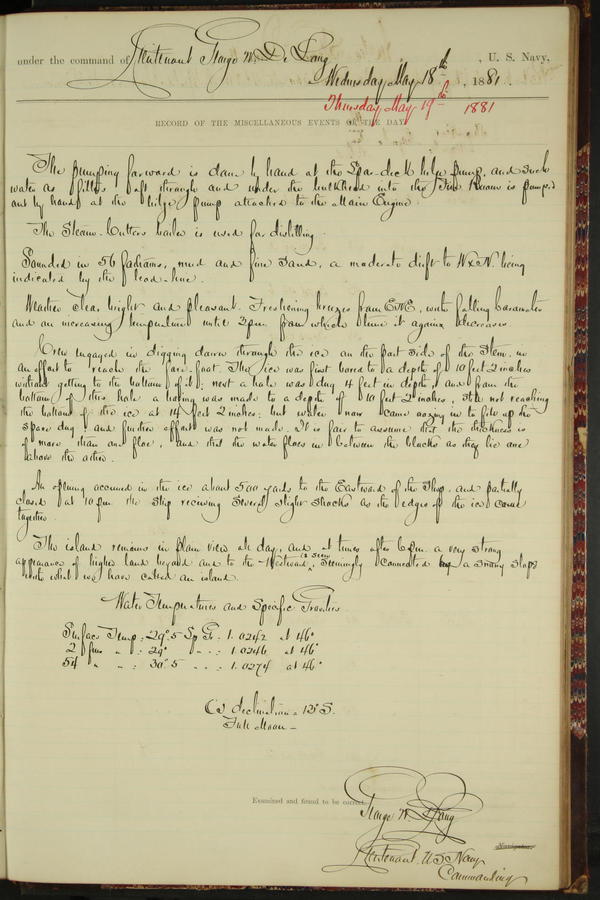 under the command of Lieutenant George W. De Long , U. S. Navy,
Wednesday May 18th , 1881.
Thursday May 19th 1881
RECORD OF THE MISCELLANEOUS EVENTS OF THE DAY
The pumping forward is done by hand at the Spar-deck bilge pump, and such
water as filters aft through and under the bulkhead into the Fire Room is pumped
out by hand at the bilge pump attached to the Main Engine.
The Steam-Cutters boiler is used for distilling.
Sounded in 56 fathoms, mud and fine sand, a moderate drift to WxN being
indicated by the lead-line.
Weather clear, bright and pleasant. Freshening breezes from ENE, with falling barometer
and an increasing temperature until 3 pm from which time it again decreases
Crew engaged in digging down through the ice on the port side of the Stem in
an effort to reach the fore-foot. The ice was first bored to a depth of 10 feet 2 inches
without getting to the bottom of it; next a hole was dug 4 feet in depth, and from the
bottom of this hole a boring was made to a depth of 10 feet 2 inches, still not reaching
the bottom of the ice at 14 feet 2 inches; but water now came oozing in to fill up the
space dug and further effort was not made. It is fair to assume that the thickness is
of more than one floe, and that the water flows in between the blocks as they lie one
above the other.
An opening occurred in the ice about 500 yards to the Eastward of the Ship, and partially
closed at 10 pm the ship receiving several slight shocks as the edges of the ice came
together.
The island remains in plain view all day, and at times after 6 pm a very strong
appearance of higher land beyond and to the Westward is seen seemingly connected by a snowy slope
with what we have called an island.
Water Temperatures and Specific Gravities
Surface Temp: 29°5 Sp Gr: 1.0242 at 46°
2 fms " : 29° " " : 1.0246 at 46°
54 " " : 30°5 " " : 1.0274 at 46°
declination = 13° S.
Full Moon
Examined and found to be correct.
George W. De Long
Navigator.
Lieutenant, U.S. Navy
Commanding